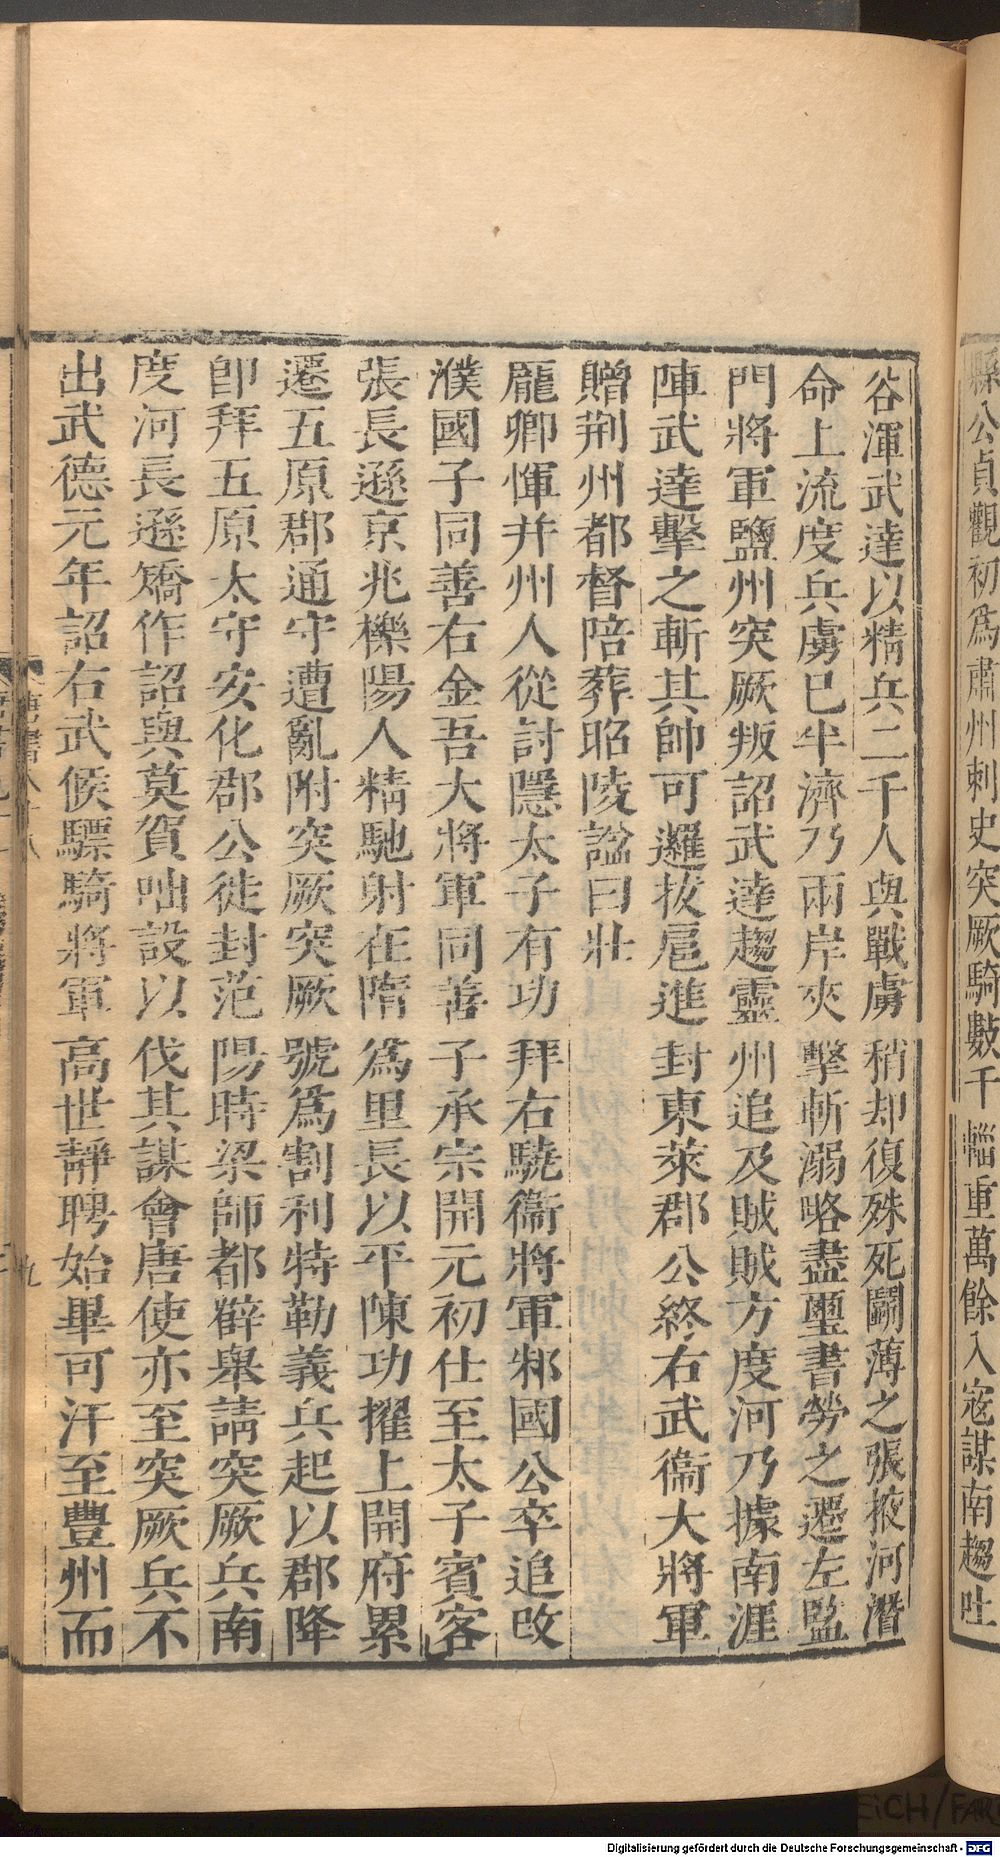 縣公貞觀初爲肅州刺史突厥騎數千輜重萬餘入寇謀南趨吐
谷渾武達以精兵二千人與戰虜稍却復殊死鬬薄之張掖河潛
命上流度兵虜已半濟乃兩岸夾擊斬溺略盡璽書勞之遷左監
門將軍鹽州突厥叛詔武達趨靈州追及賊賊方度河乃據南涯
陣武達擊之斬其帥可邏拔扈進封東萊郡公終右武衞大將軍
贈荆州都督陪葬昭陵謚曰壯
龐卿惲并州人從討隱太子有功拜右驍衞將軍邾國公卒追改
濮國子同善右金吾大將軍同善子承宗開元初仕至太子賓客
張長遜京兆櫟陽人精馳射在隋爲里長以平陳功擢上開府累
遷五原郡通守遭亂附突厥突厥號爲割利特勒義兵起以郡降
卽拜五原太守安化郡公徙封范陽時梁師都薛舉請突厥兵南
度河長遜矯作詔與莫賀咄設以伐其謀會唐使亦至突厥兵不
出武德元年詔右武候驃騎將軍高世靜聘始畢可汗至豐州而
九
EICH/FAR
Digitalisierung gefördert durch die Deutsche Forschungsgemeinschaft - DFG